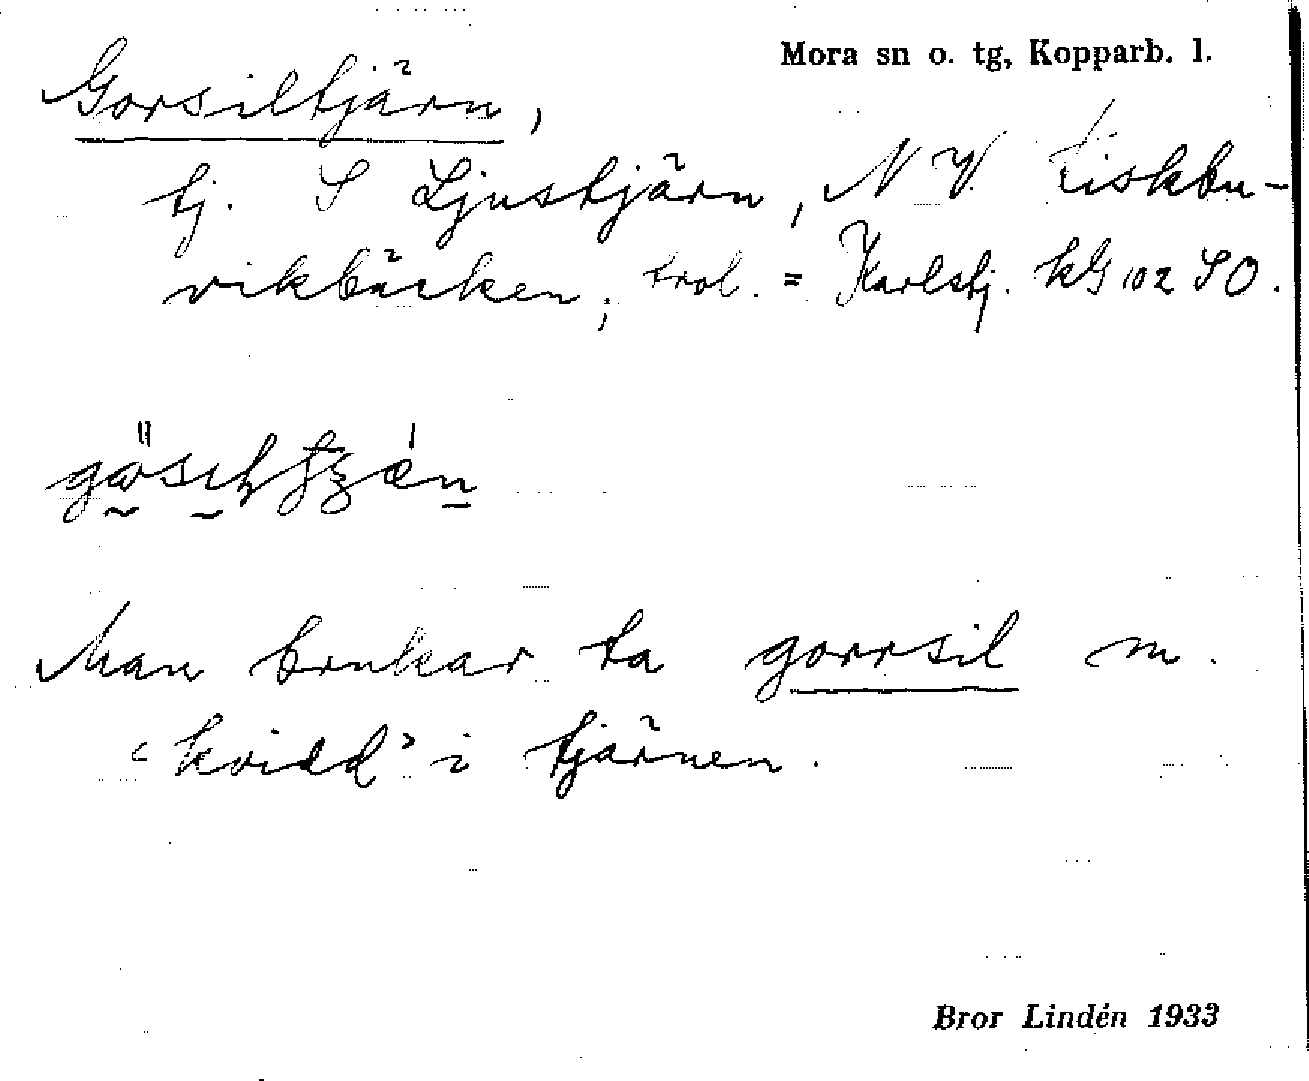 Mora sn o. tg, Kopparb. l.
Gorsiltjärn,
tj. S Ljustjärn, N V. Fiskbu-
vikbäcken, trol. = Karlstj. kG 102 SO.
Man brukar ta gorrsil m.
"kvidd" i tjärnen.
Bror Lindén 1933